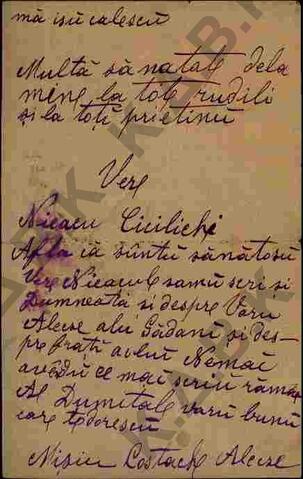 mă isu calescu
Multă sănatate dela
mine la tote rudili
și la toți prietinii
Vere
Nicacu Cicilichi
Afla că sûntu sănătosu
Vere Nicacule samü scri si
Dumneată si despre Varu
Alecse alu Gădană și des-
pre frați avlui Nemai
avendu ce mai scriu rămăe
Al Dumitale varu bunu
care tedorescu
Mișiu Costache Alecse